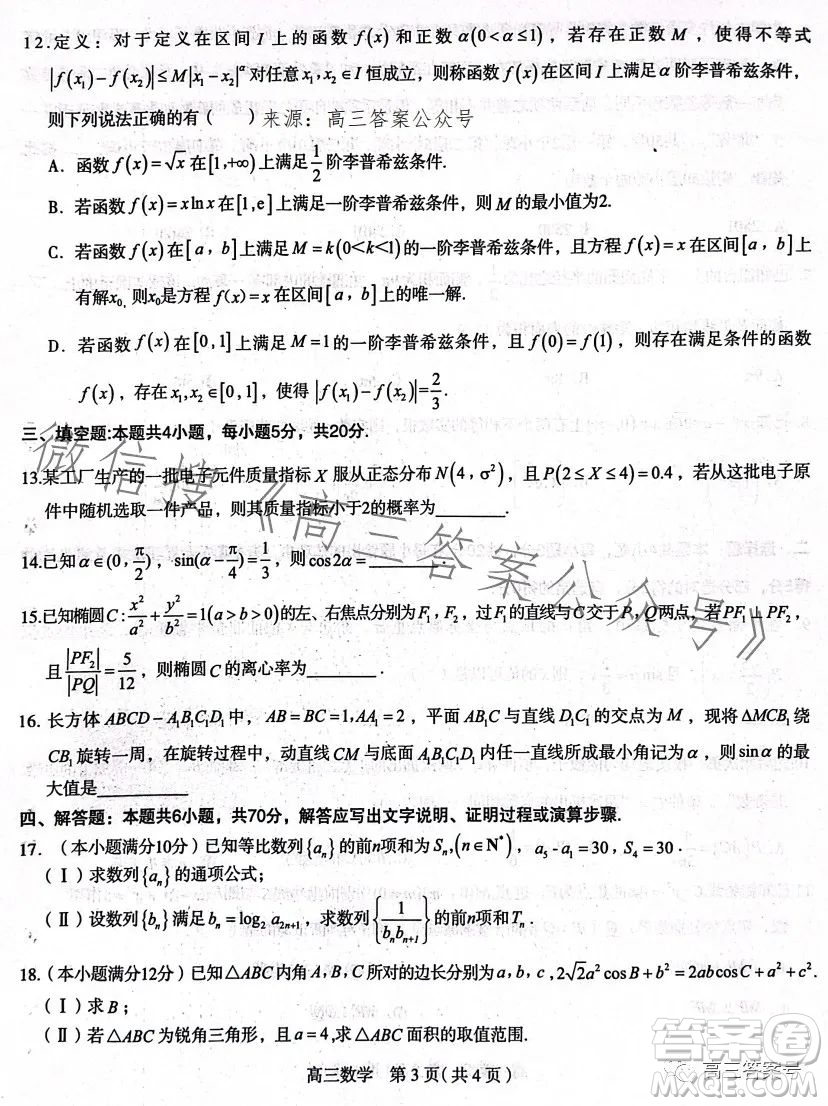 12.定义：对于定义在区间 I 上的函数 f(x) 和正数 α(0<α≤1)，若存在正数 M，使得不等式
|f(x₁)−f(x₂)|≤M|x₁−x₂|^α 对任意 x₁,x₂∈I 恒成立，则称函数 f(x) 在区间 I 上满足 α 阶李普希兹条件，
则下列说法正确的有（　　）来源：高三答案公众号
A．函数 f(x)=√x 在[1,+∞) 上满足 1/2 阶李普希兹条件.
B．若函数 f(x)=xlnx 在[1,e] 上满足一阶李普希兹条件，则 M 的最小值为2.
C．若函数 f(x) 在[a，b]上满足 M=k(0<k<1) 的一阶李普希兹条件，且方程 f(x)=x 在区间[a，b]上
有解x₀，则x₀是方程 f(x)=x 在区间[a，b]上的唯一解.
D．若函数 f(x) 在[0,1] 上满足 M=1 的一阶李普希兹条件，且 f(0)=f(1)，则存在满足条件的函数
f(x)，存在 x₁,x₂∈[0,1]，使得 |f(x₁)−f(x₂)|=2/3.
三、填空题:本题共4小题，每小题5分，共20分.
13.某工厂生产的一批电子元件质量指标 X 服从正态分布 N(4,σ²)，且 P(2≤X≤4)=0.4，若从这批电子原
件中随机选取一件产品，则其质量指标小于2的概率为________.
14.已知 α∈(0,π/2)，sin(α−π/4)=1/3，则 cos2α=________.
15.已知椭圆 C:x²/a²+y²/b²=1(a>b>0)的左、右焦点分别为 F₁，F₂，过 F₁的直线与C交于 P，Q两点，若 PF₁⊥PF₂，
且|PF₂|/|PQ|=5/12，则椭圆 C 的离心率为________.
16.长方体 ABCD−A₁B₁C₁D₁ 中，AB=BC=1,AA₁=2，平面 AB₁C 与直线 D₁C₁ 的交点为 M，现将△MCB₁绕
CB₁旋转一周，在旋转过程中，动直线CM与底面 A₁B₁C₁D₁内任一直线所成最小角记为α，则sinα的最
大值是________
四、解答题：本题共6小题，共70分，解答应写出文字说明、证明过程或演算步骤.
17.（本小题满分10分）已知等比数列{aₙ}的前n项和为 Sₙ,(n∈N*)，a₅-a₁=30，S₄=30.
（Ⅰ）求数列{aₙ}的通项公式；
（Ⅱ）设数列{bₙ}满足 bₙ=log₂a₂ₙ₊₁，求数列{1/(bₙbₙ₊₁)}的前n项和Tₙ.
18.（本小题满分12分）已知△ABC内角 A,B,C 所对的边长分别为 a,b,c,2√2a²cosB+b²=2abcosC+a²+c².
（Ⅰ）求 B；
（Ⅱ）若△ABC为锐角三角形，且 a=4,求△ABC 面积的取值范围.
高三数学 第 3 页( 共 4 页 )
微信搜《高三答案公众号》
高三答案号
答案圈
MXQE.COM